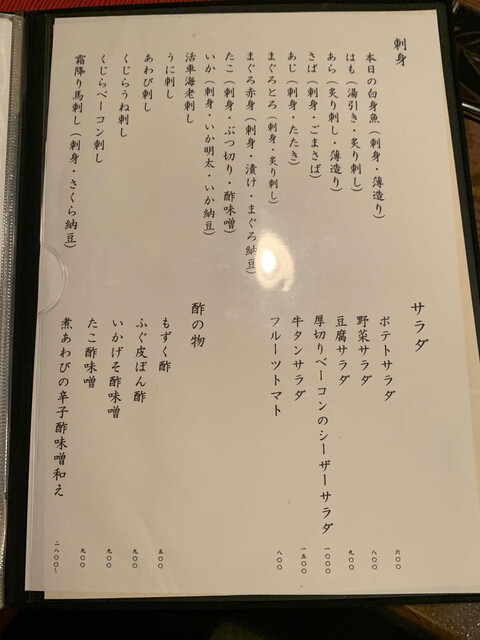 刺身
本日の白身魚（刺身・薄造り）
はも（湯引き・炙り刺し）
あら（炙り刺し・薄造り）
さば（刺身・ごまさば）
あじ（刺身・たたき）
まぐろとろ（刺身・炙り刺し）
まぐろ赤身（刺身・漬け・まぐろ納豆）
たこ（刺身・ぶつ切り・酢味噌）
いか（刺身・いか明太・いか納豆）
活車海老刺し
うに刺し
あわび刺し
くじらうね刺し
くじらベーコン刺し
霜降り馬刺し（刺身・さくら納豆）
サラダ
ポテトサラダ 六〇〇
野菜サラダ 八〇〇
豆腐サラダ 九〇〇
厚切りベーコンのシーザーサラダ 一〇〇〇
牛タンサラダ 一五〇〇
フルーツトマト 八〇〇
酢の物
もずく酢 五〇〇
ふぐ皮ぽん酢 九〇〇
いかげそ酢味噌 九〇〇
たこ酢味噌 九〇〇
煮あわびの辛子酢味噌和え 二八〇〇〜